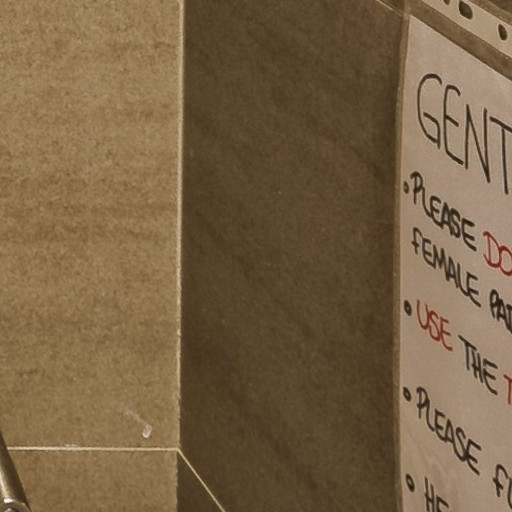 GENT
• PLEASE DO
FEMALE PAD
• USE THE T
• PLEASE FL
• HE